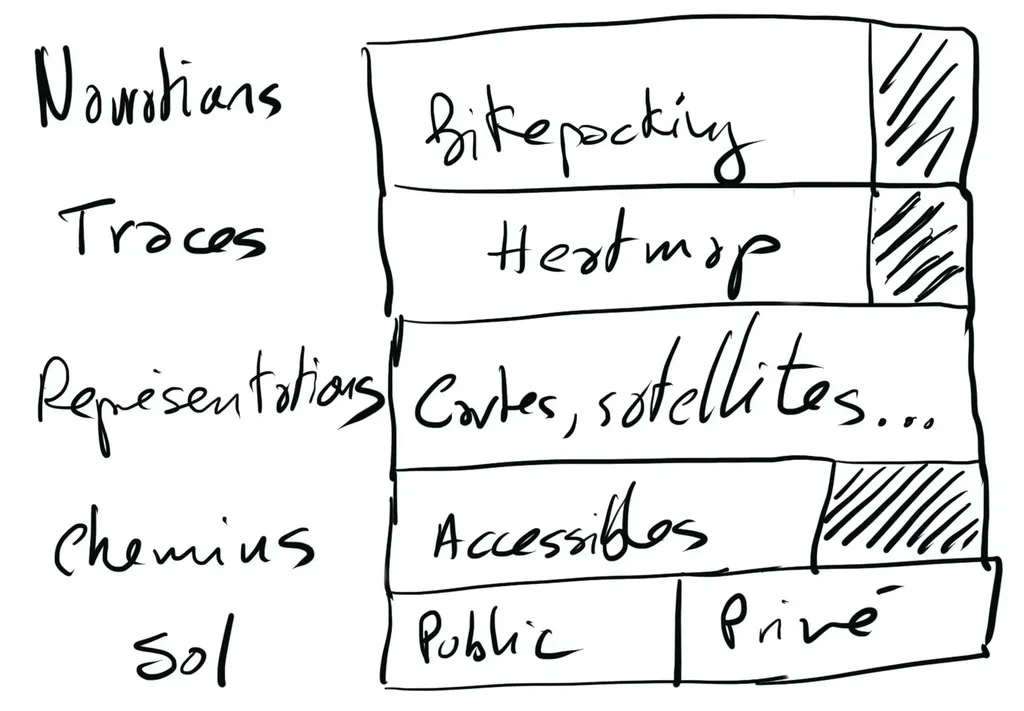 Narrations
Bikepacking
Traces
Heatmap
Représentations
Cartes, satellites...
Chemins
Accessibles
Sol
Public
Privé